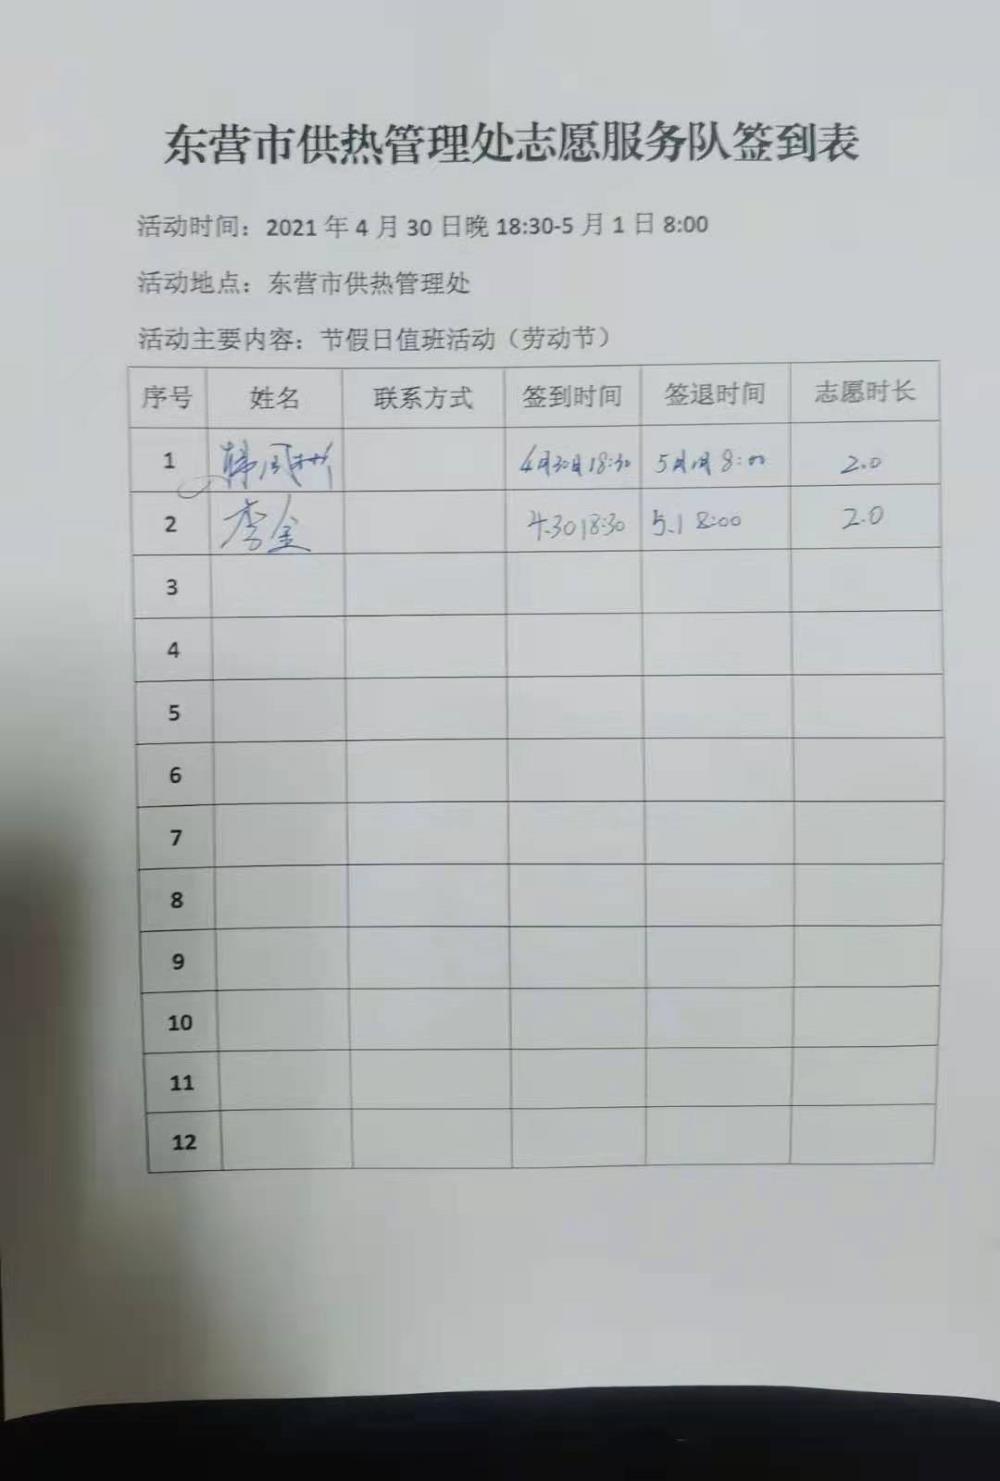 东营市供热管理处志愿服务队签到表
活动时间：2021 年 4 月 30 日晚 18:30-5 月 1 日 8:00
活动地点：东营市供热管理处
活动主要内容：节假日值班活动（劳动节）
序号 姓名 联系方式 签到时间 签退时间 志愿时长
1 4月30日18:30 5月1日 8:00 2.0
2 李金 4.30 18:30 5.1 8:00 2.0
3
4
5
6
7
8
9
10
11
12